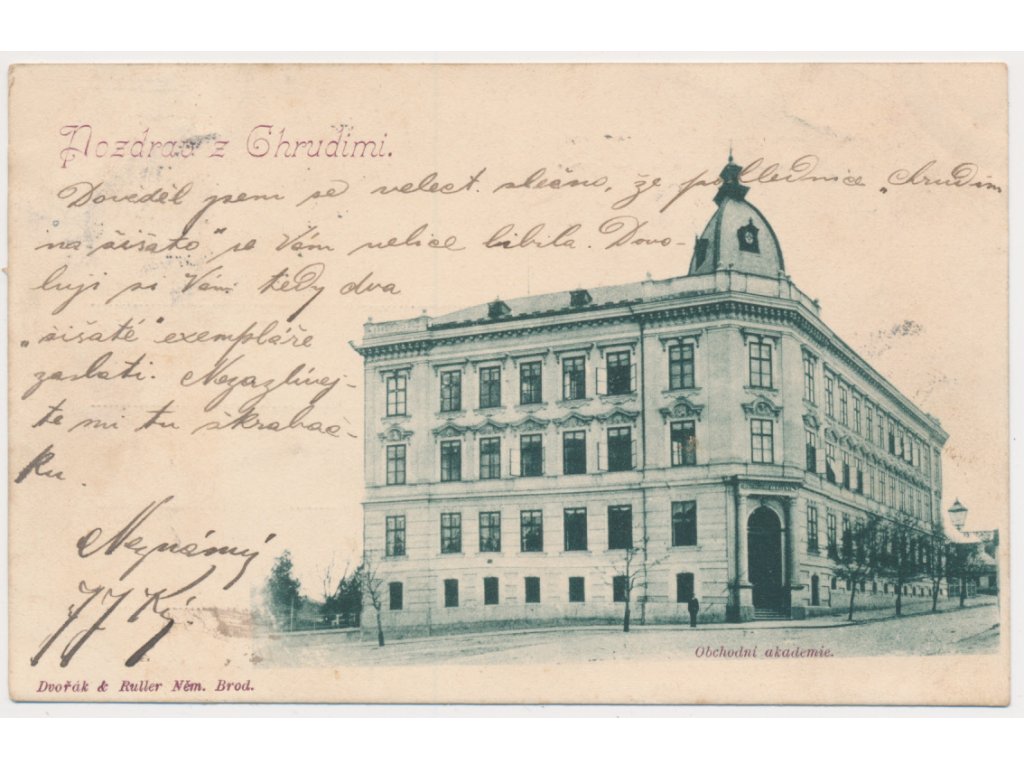 Pozdrav z Chrudimi.
Dověděl jsem se velect. slečno, že pohlednice „Chrudim
na šišato“ se Vám velice líbila. Dovo-
luji si Vám tedy dva
„šišaté“ exempláře
zaslati. Nezazlívej-
te mi tu škrabač-
ku.
Neznámý
Obchodní akademie.
Dvořák & Ruller Něm. Brod.